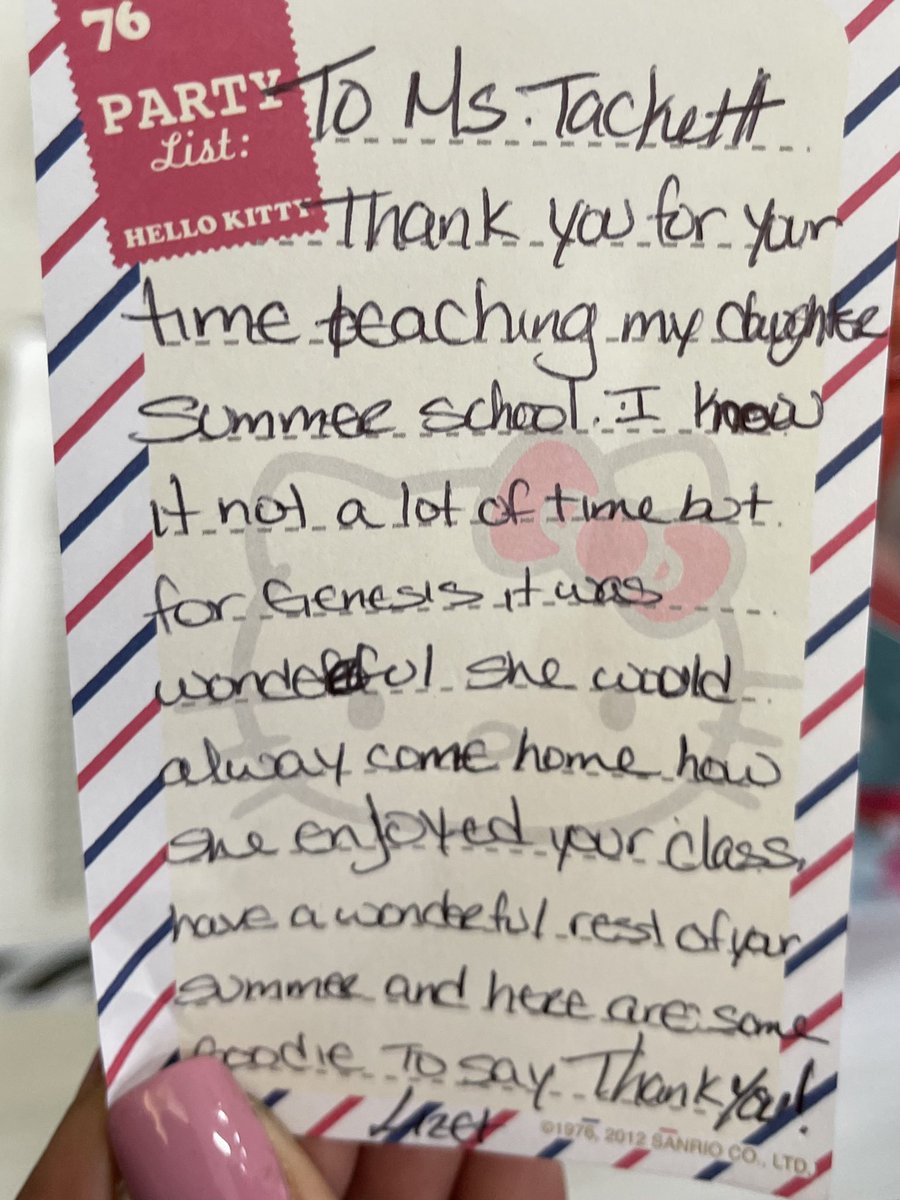 76
PARTY
List:
HELLO KITTY
To Ms. Tackett
Thank you for your
time teaching my daughter
summer school. I know
it not a lot of time but
for Genesis it was
wonderful she would
alway come home how
she enjoyed your class,
have a wonderful rest of your
summer and here are some
goodie To say Thank you!
Lizet
©1976, 2012 SANRIO CO., LTD.